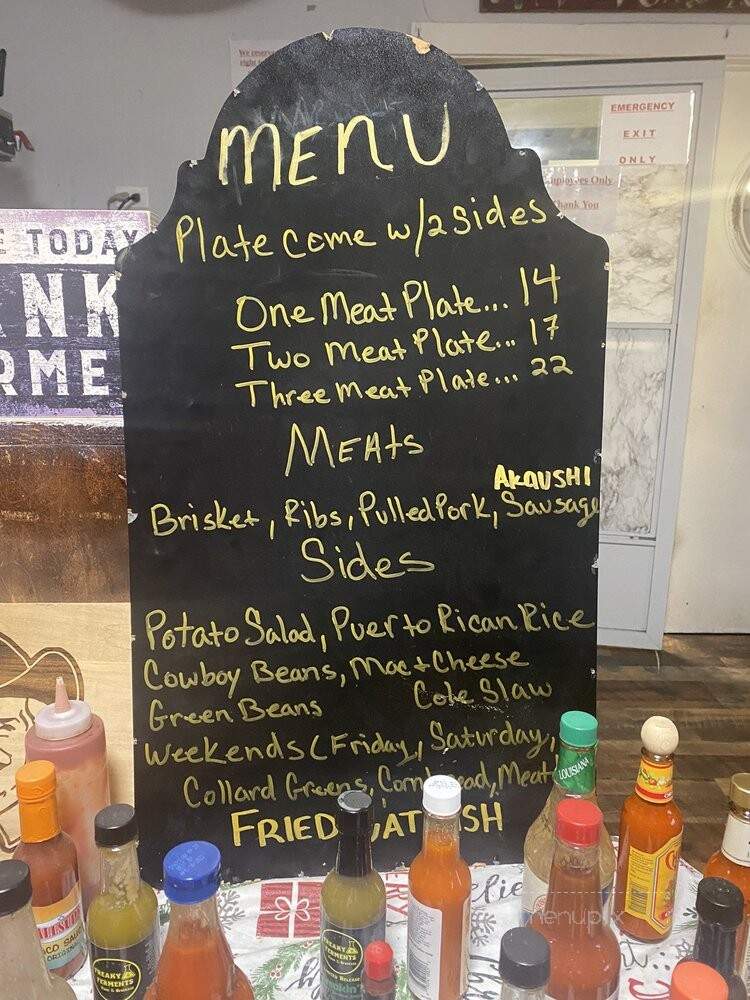 MENU
Plate Come w/2 Sides
One Meat Plate... 14
Two Meat Plate... 17
Three Meat Plate... 22
MEAts
AKAUSHI
Brisket, Ribs, Pulled Pork, Sausage
Sides
Potato Salad, Puerto Rican Rice
Cowboy Beans, Mac + Cheese
Green Beans Cole Slaw
Weekends (Friday, Saturday,
Collard Greens, Meat
FRIED
EMERGENCY
EXIT
ONLY
Only
Thank You
TODAY
LOUISIANA
FREAKY
FERMENTS
menupix